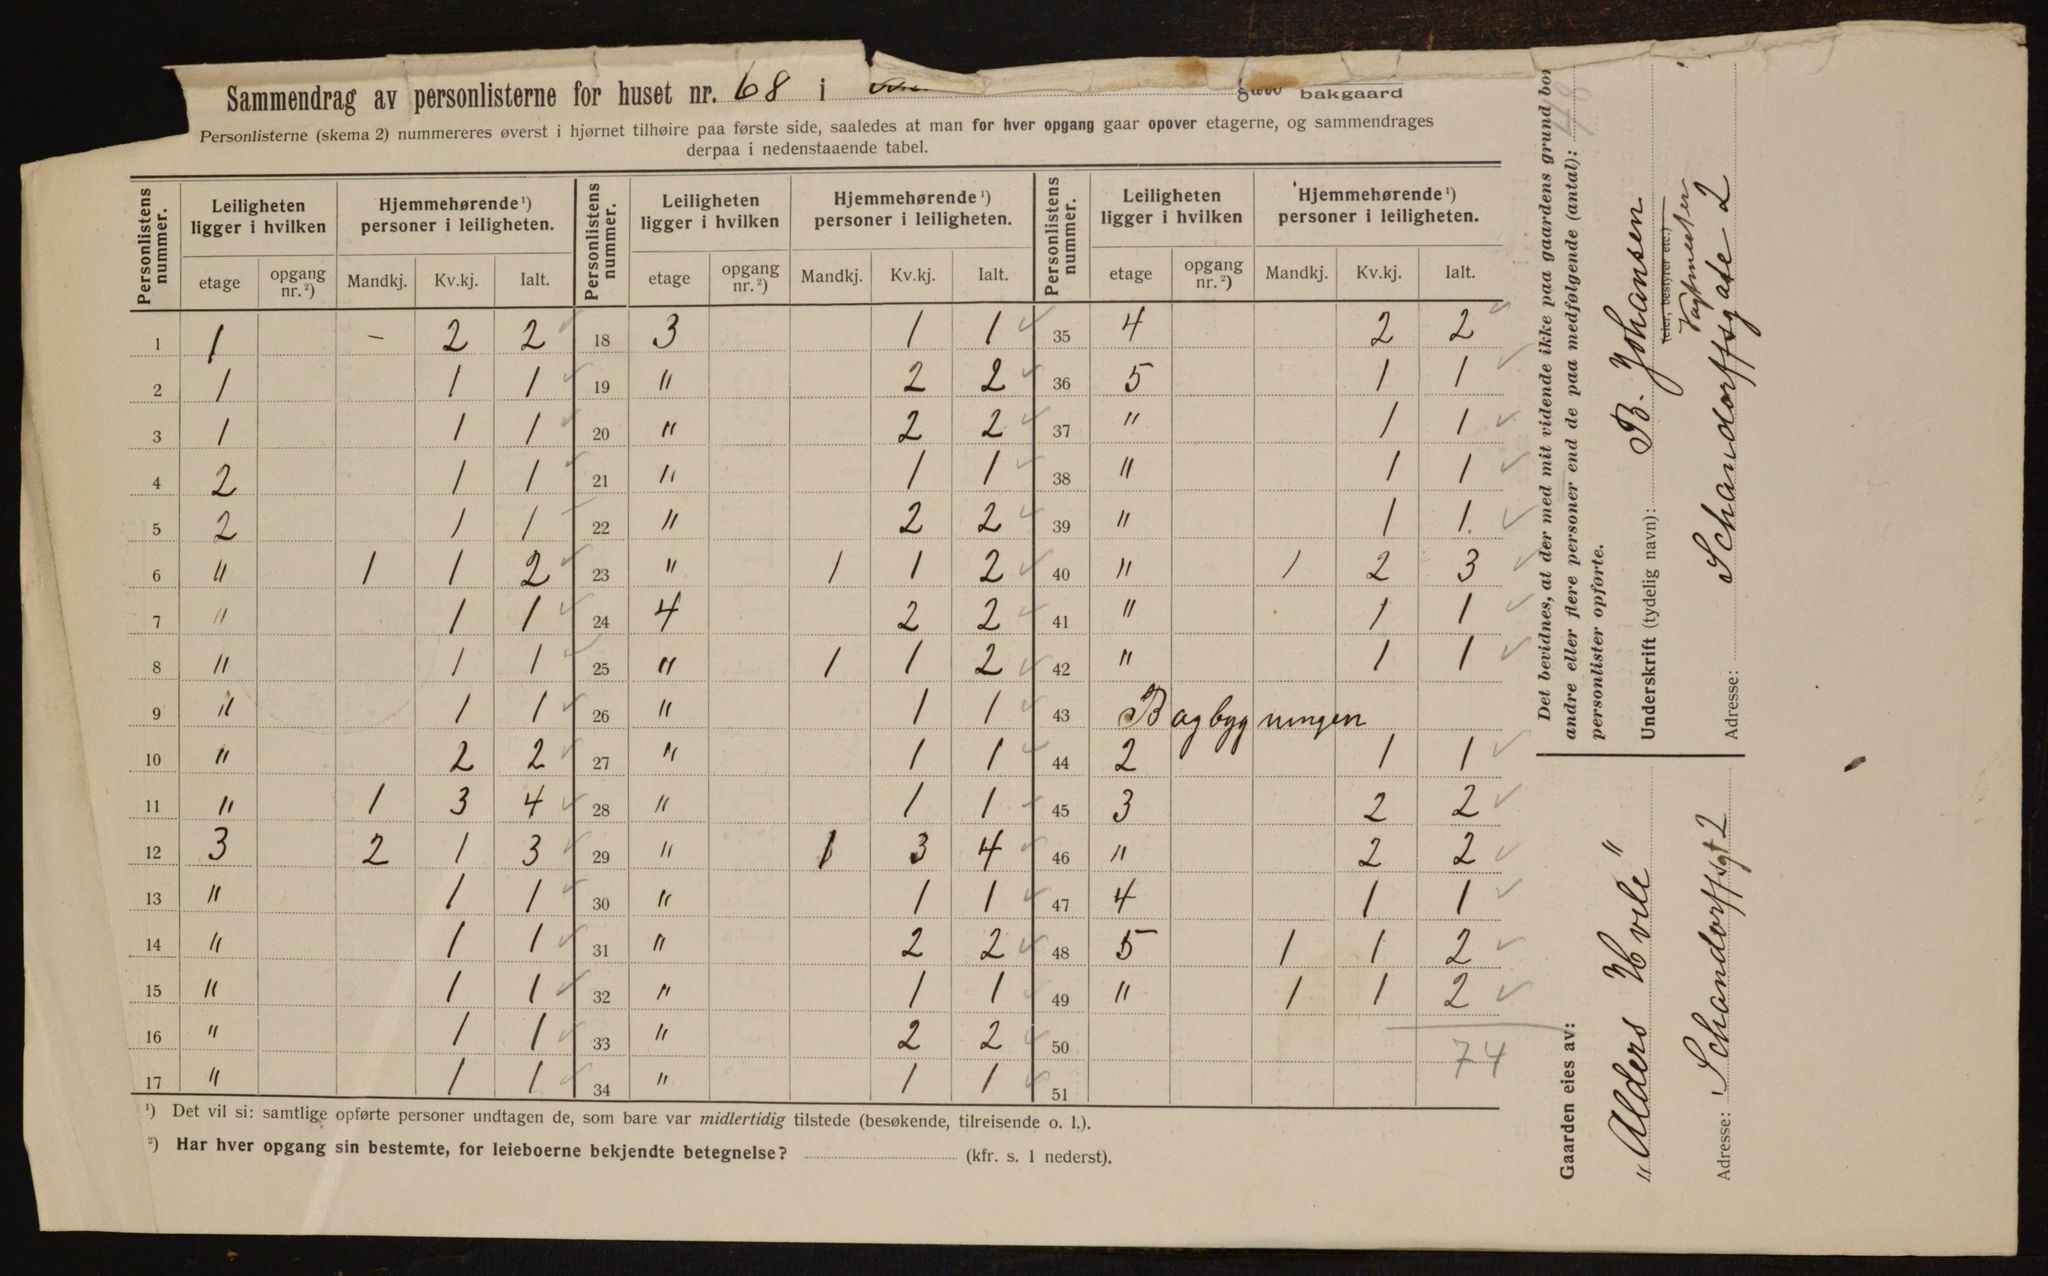 Sammendrag av personlisterne for huset nr. 68 i
bakgaard
Personlisterne (skema 2) nummereres øverst i hjørnet tilhøire paa første side, saaledes at man for hver opgang gaar opover etagerne, og sammendrages
derpaa i nedenstaaende tabel.
Personlistens nummer. | Leiligheten ligger i hvilken | Hjemmehørende ¹) personer i leiligheten. | Personlistens nummer. | Leiligheten ligger i hvilken | Hjemmehørende ¹) personer i leiligheten. | Personlistens nummer. | Leiligheten ligger i hvilken | Hjemmehørende ¹) personer i leiligheten.
etage | opgang nr. ²) | Mandkj. | Kv.kj. | Ialt. | etage | opgang nr. ²) | Mandkj. | Kv.kj. | Ialt. | etage | opgang nr. ²) | Mandkj. | Kv.kj. | Ialt.
1 1 – 2 2 18 3 1 1 35 4 2 2
2 1 1 1 19 " 2 2 36 5 1 1
3 1 1 1 20 " 2 2 37 " 1 1
4 2 1 1 21 " 1 1 38 " 1 1
5 2 1 1 22 " 2 2 39 " 1 1.
6 " 1 1 2 23 " 1 1 2 40 " 1 2 3
7 " 1 1 24 4 2 2 41 " 1 1
8 " 1 1 25 " 1 1 2 42 " 1 1
9 " 1 1 26 " 1 1 43 Bagbygningen
10 " 2 2 27 " 1 1 44 2 1 1
11 " 1 3 4 28 " 1 1 45 3 2 2
12 3 2 1 3 29 " 1 3 4 46 " 2 2
13 " 1 1 30 " 1 1 47 4 1 1
14 " 1 1 31 " 2 2 48 5 1 1 2
15 " 1 1 32 " 1 1 49 " 1 1 2
16 " 1 1 33 " 2 2 50
17 " 1 1 34 " 1 1 51
74
¹) Det vil si: samtlige opførte personer undtagen de, som bare var midlertidig tilstede (besøkende, tilreisende o. l.).
²) Har hver opgang sin bestemte, for leieboerne bekjendte betegnelse? (kfr. s. 1 nederst).
Det bevidnes, at der med mit vidende ikke paa gaardens grund bor
andre eller flere personer end de paa medfølgende (antal): 48
personlister opførte.
Underskrift (tydelig navn): B. Johansen
(eier, bestyrer etc.)
Vagtmester
Adresse: Schandorffsgate 2
Gaarden eies av:
"Alders Hvile"
Adresse: Schandorffsgt 2